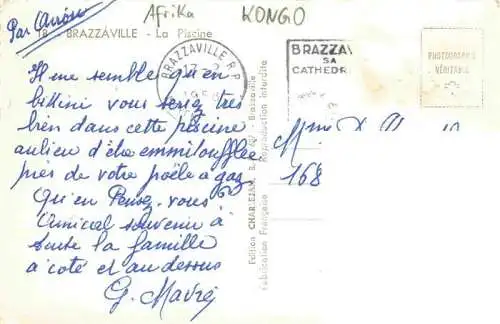 Par Avion
Afrika KONGO
18 - BRAZZAVILLE - La Piscine
BRAZZAVILLE R.P.
17-2
1958
BRAZZAV
SA
CATHEDR
PHOTOGRAPHIE
VÉRITABLE
Il me semble qu'en
bikini vous seriez très
bien dans cette piscine
au lieu d'être emmitouflée
près de votre poêle à gaz
Qu'en Pensez-vous
Amical souvenir à
toute la famille
à côté et au dessus
G.
Edition CHARLEJAN, Brazzaville
Fabrication Française - Reproduction Interdite
Mme
168